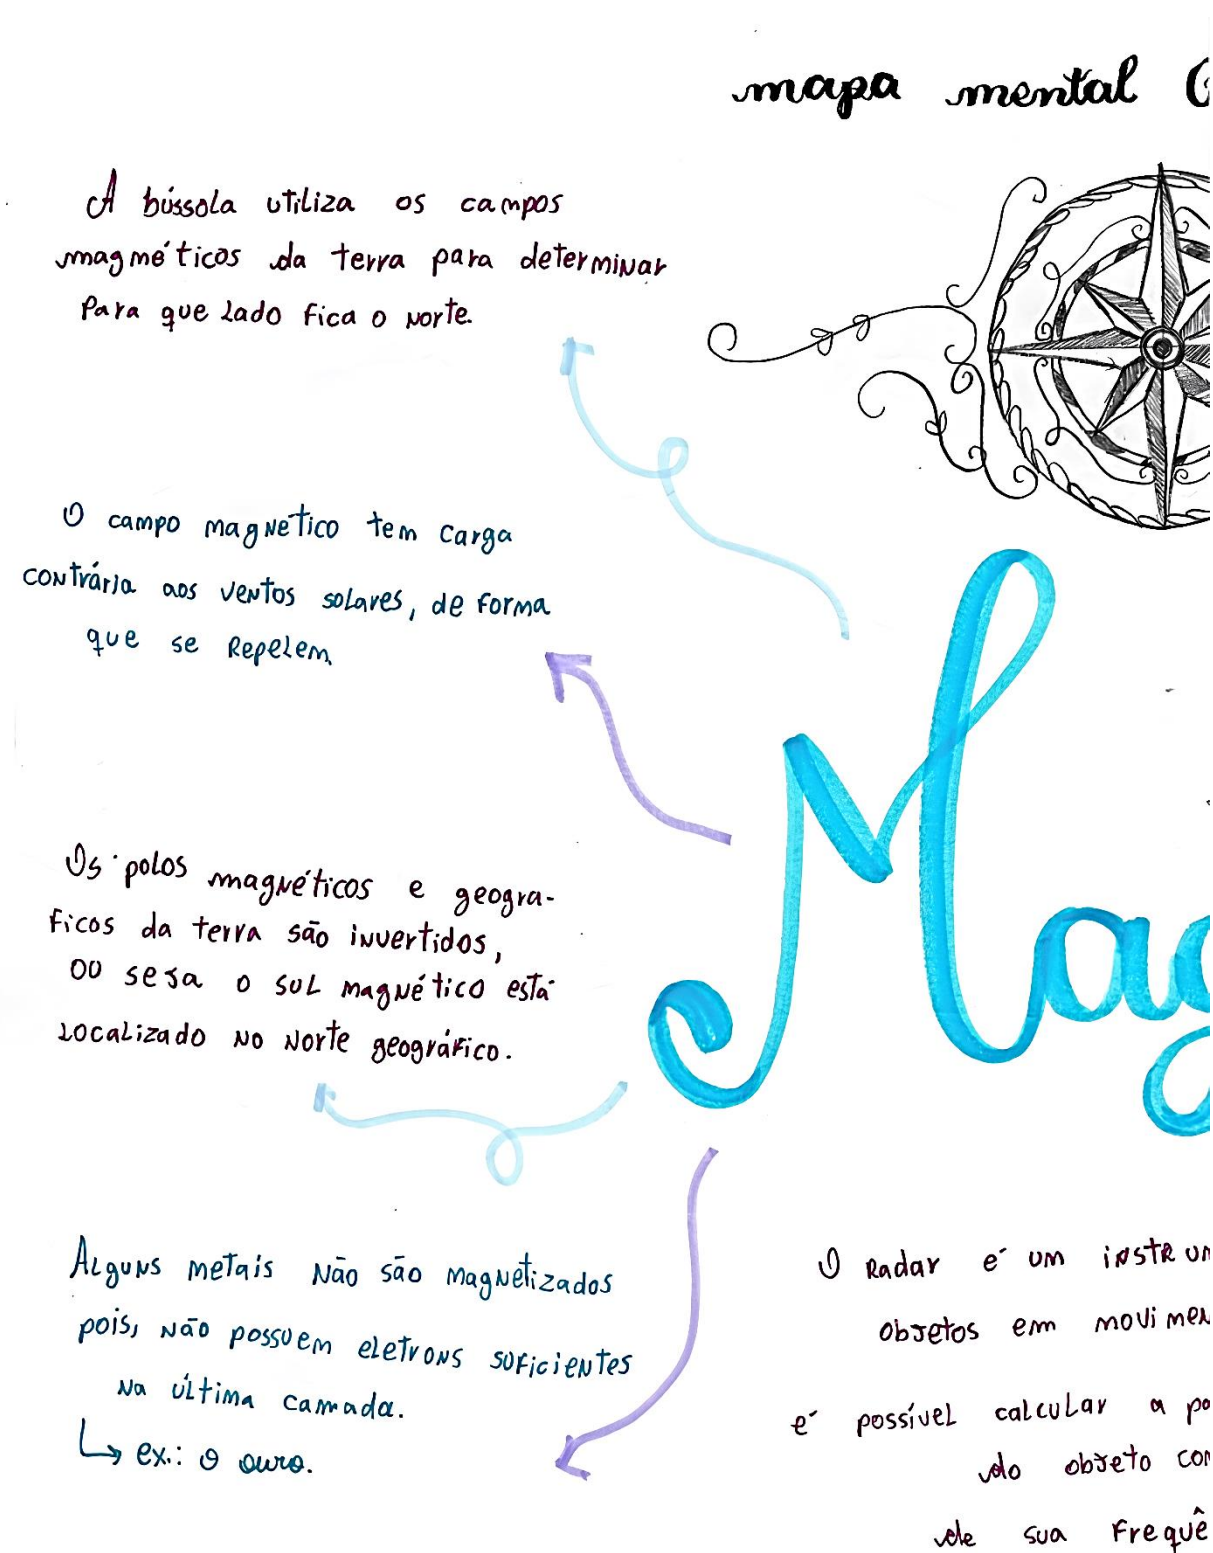 mapa mental
A bússola utiliza os campos
magméticos da terra para determinar
para que lado fica o norte.
O campo magnético tem carga
contrária aos ventos solares, de forma
que se repelem
Os polos magnéticos e geogra-
ficos da terra são invertidos,
ou seja o sul magnético está
localizado no norte geográfico.
Alguns metais não são magnetizados
pois, não possuem eletrons suficientes
na última camada.
↳ ex.: o ouro.
Mag
O radar é um instrum
objetos em movimen
é possível calcular a po
do objeto com
de sua frequê